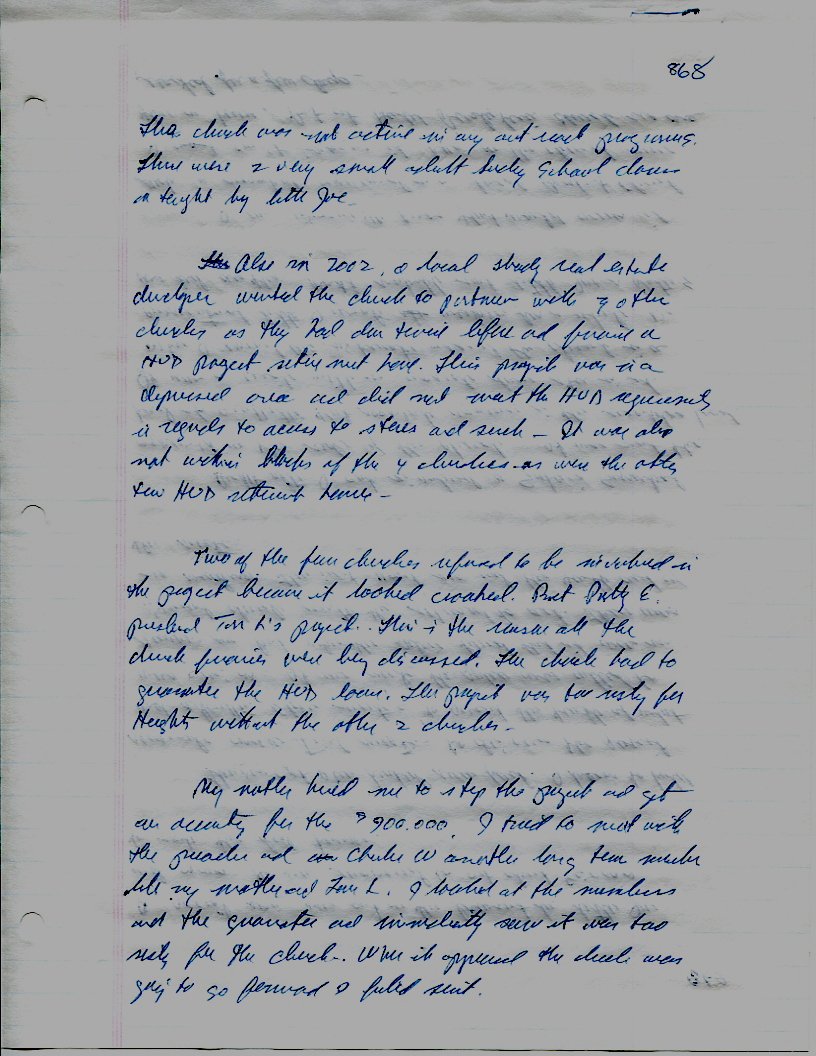 868
The church was not active in any out reach programs.
There were 2 very small adult Sunday School classes
taught by little Joe
Also in 2002, a local shady real estate
developer wanted the church to partner with 3 other
churches as they had done twice before and form a
HUD project retirement home. This project was in a
depressed area and did not meet the HUD requirements
in regards to access to stores and such - It was also
not within blocks of the 4 churches as were the other
two HUD retirement homes -
Two of the four churches refused to be involved in
the project because it looked crooked. But Patty E.
pushed Tom L's project. This is the reason all the
church finances were being discussed. The church had to
guarantee the HUD loan. The project was too risky for
Heights without the other 2 churches -
My mother hired me to stop the project and get
an accounting for the $900.000. I tried to meet with
the preacher and Charlie W another long term member
like my mother and Tom L. I looked at the numbers
and the guarantee and immediately saw it was too
risky for the church -. When it appeared the church was
going to go forward I filed suit.